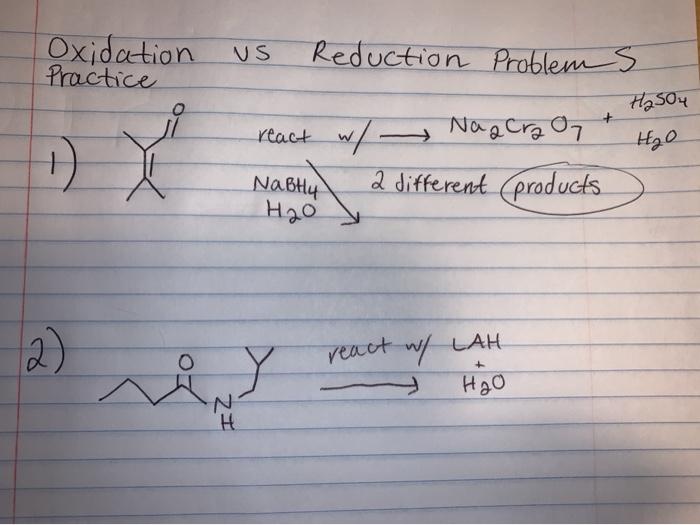 Oxidation vs Reduction Problems
Practice
1) O react w/ → Na2Cr2O7 + H2SO4
H2O
NaBH4 2 different products
H2O
2) O N H react w/ LAH
+
H2O